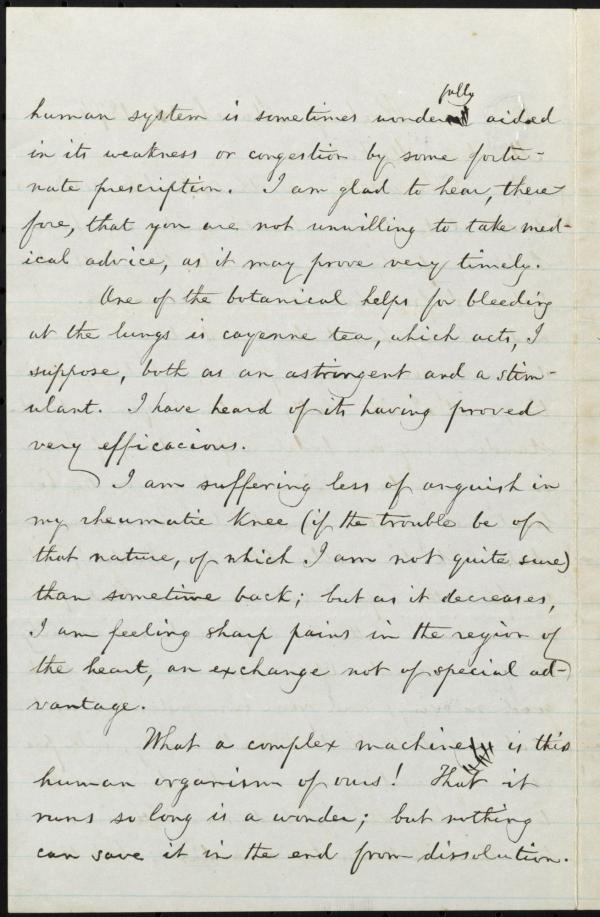 human system is sometimes wonderfully aided
in its weakness or congestion by some fortu-
nate prescription. I am glad to hear, there-
fore, that you are not unwilling to take med-
ical advice, as it may prove very timely.
One of the botanical helps for bleeding
at the lungs is cayenne tea, which acts, I
suppose, both as an astringent and a stim-
ulant. I have heard of its having proved
very efficacious.
I am suffering less of anguish in
my rheumatic knee (if the trouble be of
that nature, of which I am not quite sure)
than sometime back; but as it decreases,
I am feeling sharp pains in the region of
the heart, an exchange not of special ad-
vantage.
What a complex machine is this
human organism of ours! That it
runs so long is a wonder; but nothing
can save it in the end from dissolution.